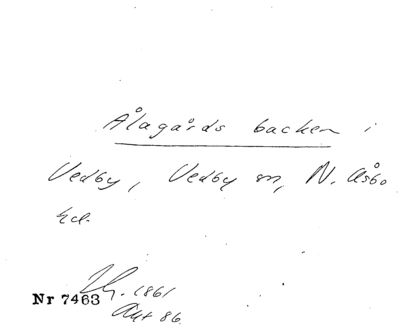 Ålagårds backen i
Vedby, Vedby sn, N. Åsbo
hd.
1861
Nr 7463
Akt 86.